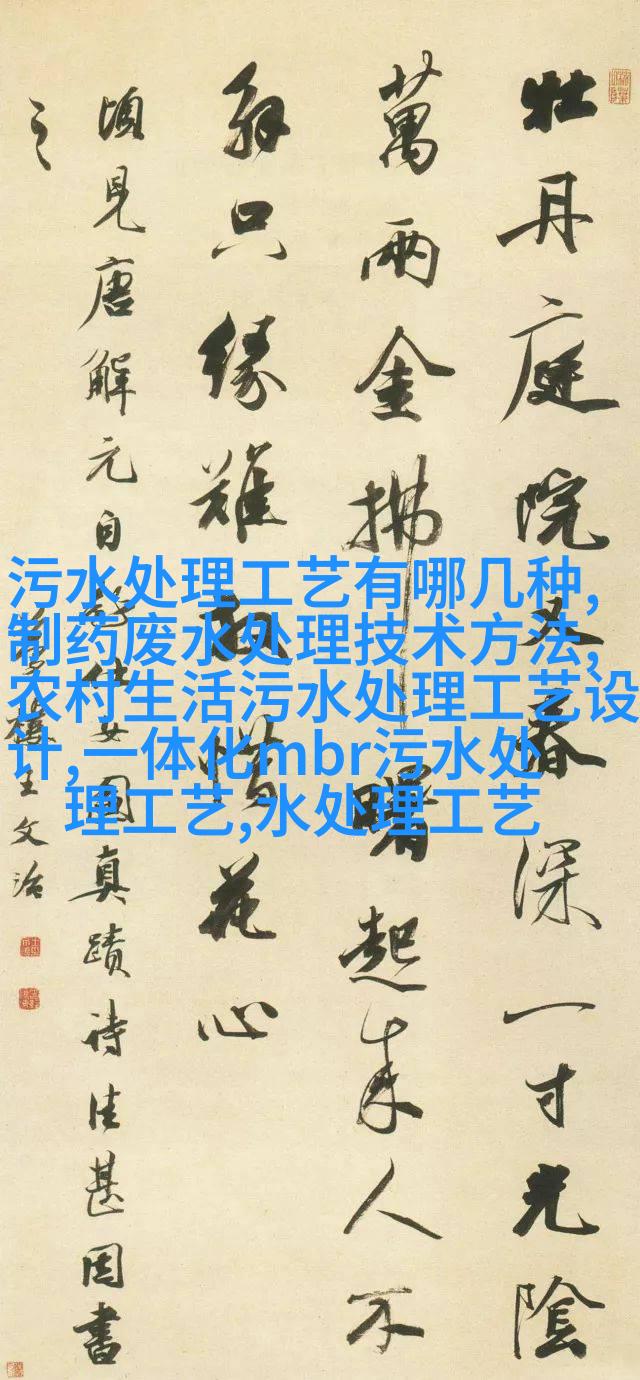 牡丹庭院又春深一寸光陰
萬兩金拂曙起來人不
解只緣難放惜花心
頃見唐解元自仕女圖真蹟詩佳甚因書
之
夢樓王文治
污水处理工艺有哪几种,
制药废水处理技术方法,
农村生活污水处理工艺设
计,一体化mbr污水处
理工艺,水处理工艺